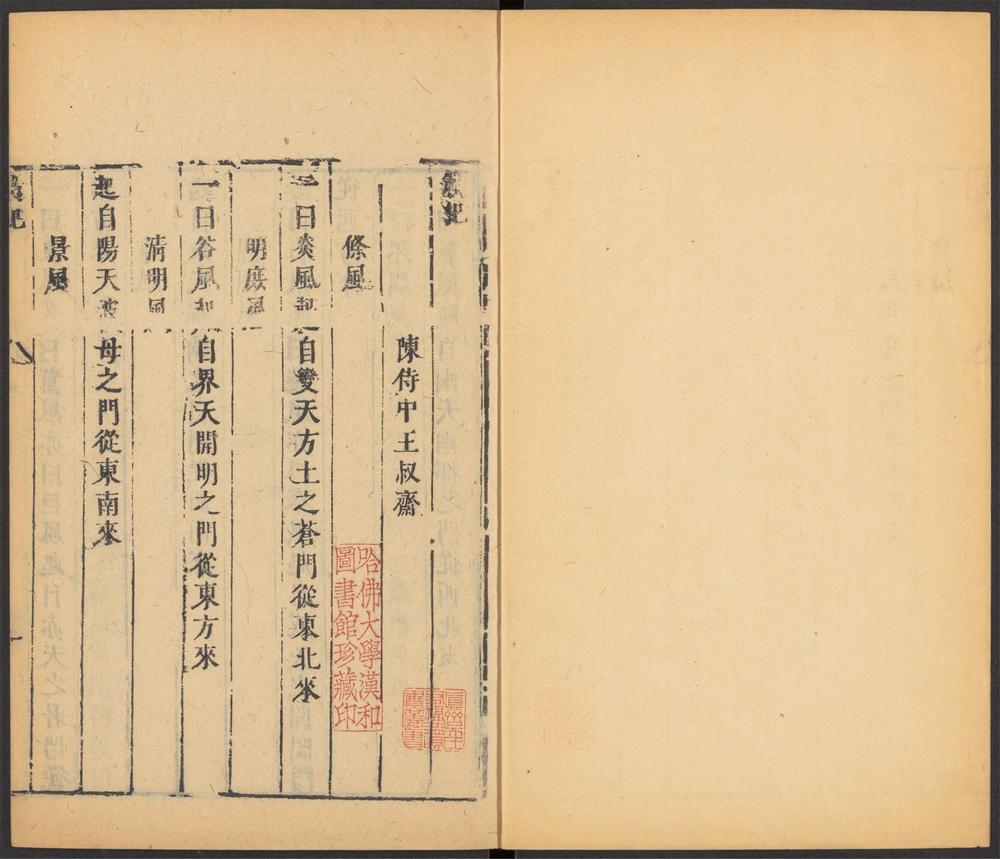 紀
陳侍中王叔齋
條風
一曰炎風起自變天方土之蒼門從東北來
明庶風
一曰谷風起自界天開明之門從東方來
清明風
起自陽天波母之門從東南來
景風
紀
哈佛大學漢和
圖書館珍藏印